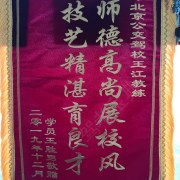 北京公交驾校王江教练
师德高尚展校风
技艺精湛育良才
学员王胜男敬赠
二零一九年十二月